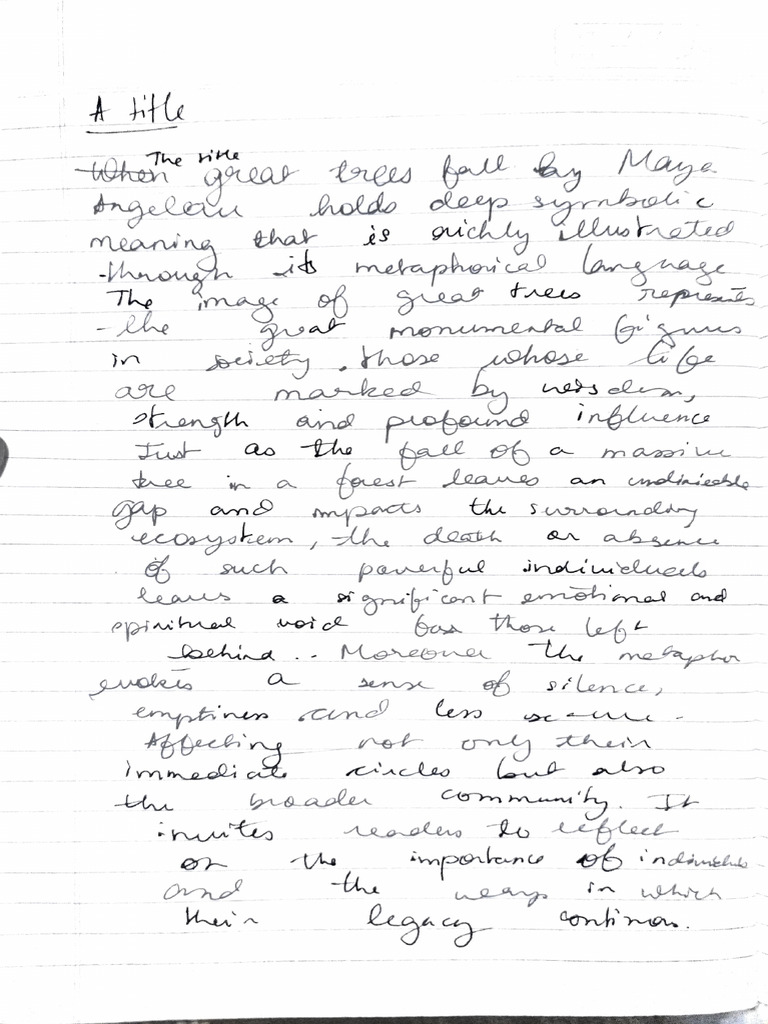 A title
The title
When great trees fall by Maya
Angelou holds deep symbolic
meaning that is richly illustrated
through its metaphorical language
The image of great trees represents
the great monumental figures
in society. those whose life
are marked by wisdom,
strength and profound influence
Just as the fall of a massive
tree in a forest leaves an undiniable
gap and impacts the surrounding
ecosystem, the death or absence
of such powerful individuals
leaves a significant emotional and
spiritual void for those left
behind.. Moreover the metaphor
evokes a sense of silence,
emptiness and less
Affecting not only their
immediate circles but also
the broader community. It
invites readers to reflect
on the importance of individuals
and the ways in which
their legacy continues.